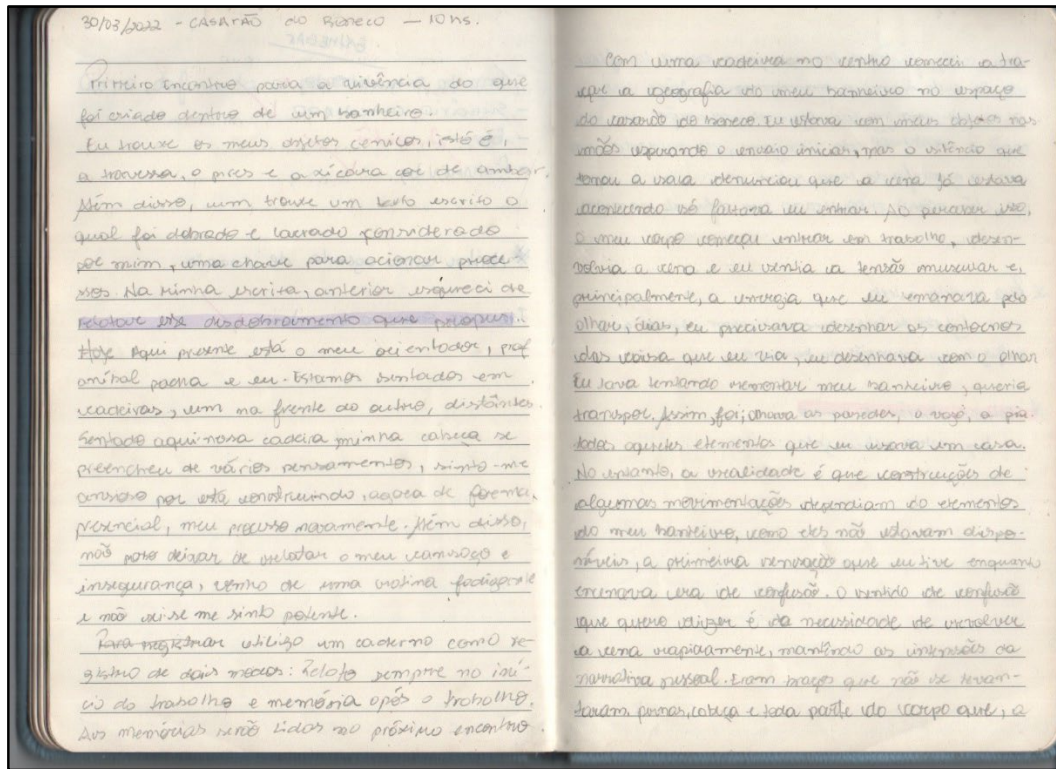 30/03/2022 - CASARÃO do Boneco - 10hs.
Primeiro encontro para a vivência do que
foi criado dentro de um banheiro.
Eu trouxe os meus objetos cênicos, isto é,
a travessa, o pires e a xícara cor de ambar.
Além disso, trouxe um texto escrito o
qual foi dobrado e lacrado considerado
por mim, uma chave para acionar proces-
sos. Na minha escrita, anterior esqueci de
relatar esse desdobramento que
Hoje Aqui presente está o meu orientador, prof
anibal pacha e eu. Estamos sentados em
cadeiras, um na frente do outro, distântes.
Sentado aqui nossa cadeira minha cabeça se
preencheu de vários pensamentos, sinto-me
ansioso por está construindo, agora de forma,
presencial, meu processo novamente. Além disso,
não posso deixar de relatar o meu cansaço e
insegurança, venho de uma rotina fadigante
e não sei se me sinto potente.
Para registrar utilizo um caderno como re-
gistro de dois modos: Relato sempre no iní-
cio do trabalho e memória após o trabalho.
As memórias serão lidas no próximo encontro.
Com uma cadeira no centro comecei a tra-
a geografia do meu banheiro no espaço
do casarão do boneco. Eu estava com meus objetos nas
mãos esperando o ensaio iniciar, mas o silêncio que
tomou a sala denunciou que a cena já estava
acontecendo só faltava eu entrar. Ao perceber isso,
o meu corpo começou entrar em trabalho, desen-
volvia a cena e eu sentia a tensão muscular e,
principalmente, a energia que eu emanava pelo
olhar, dias, eu precisava desenhar os contornos
das coisa que eu via, eu desenhava com o olhar
Eu tava tentando rememorar meu banheiro, queria
transpor. Assim, foi; as paredes, o vaso, a pia
todos aqueles elementos que eu usava em casa.
No entanto, a realidade é que construções de
algumas movimentações dependiam do elementos
do meu banheiro, como eles não estavam dispo-
níveis, a primeira sensação que eu tive enquanto
encenava era de confusão. O sentido de confusão
que quero dizer é da necessidade de resolver
a cena rapidamente, mantendo as intensões da
narrativa pessoal. Eram traços que não se levan-
taram. pernas, cabeça e toda parte do corpo que, a